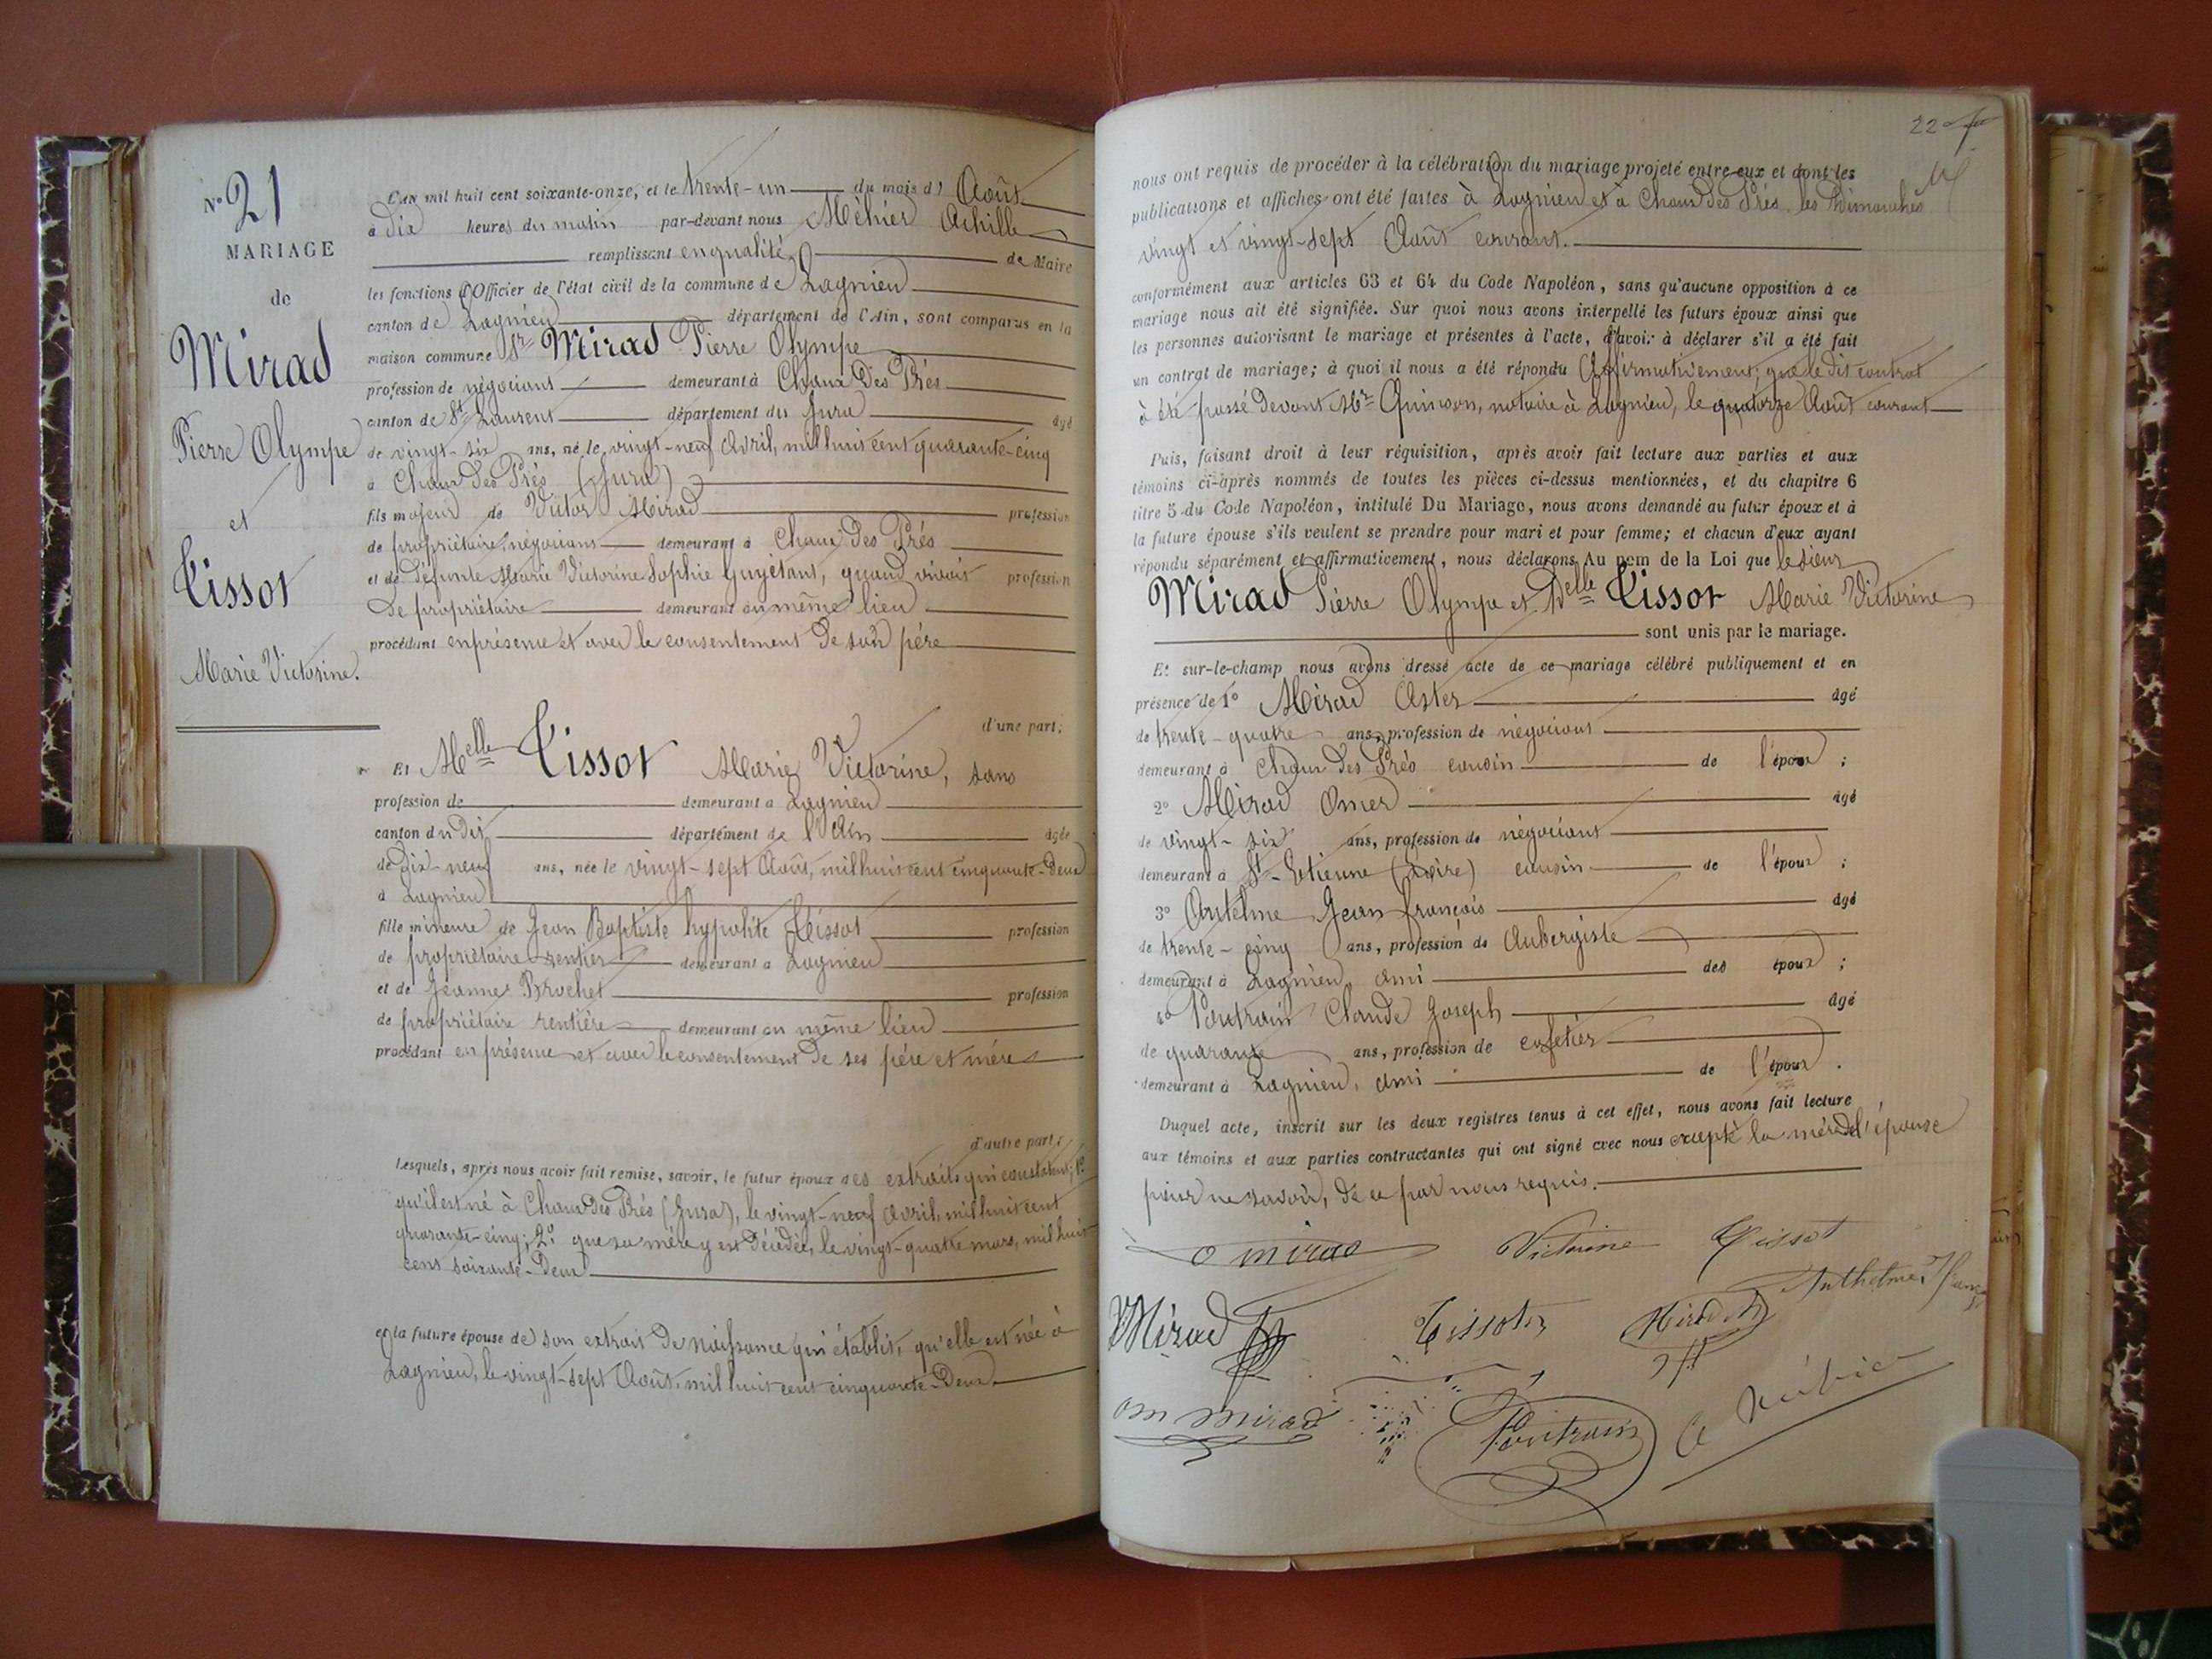 N° 21
MARIAGE
de
Mirad
Pierre Olympe
et
Tissot
Marie Victorine.
L'an mil huit cent soixante-onze, et le trente-un du mois d' Août
à dix heures du matin par-devant nous Méhier Achille
remplissant en qualité de Maire
les fonctions d'Officier de l'état civil de la commune de Lagnieu
canton de Lagnieu département de l'Ain, sont comparus en la
maison commune Sr Mirad Pierre Olympe
profession de négociant demeurant à Chaux des Prés
canton de St Laurent département du Jura âgé
de vingt-six ans, né le vingt-neuf Avril, mil huit cent quarante-cinq
à Chaux des Prés (Jura)
fils majeur de Victor Mirad profession
de propriétaire, négociant demeurant à Chaux des Prés
et de défunte Marie Victorine Sophie Guyétant, quand vivait profession
de propriétaire demeurant au même lieu
procédant en présence et avec le consentement de son père
d'une part;
Et Melle Tissot Marie Victorine, sans
profession de demeurant à Lagnieu
canton du dit département de l'Ain âgée
de dix-neuf ans, née le vingt-sept Août, mil huit cent cinquante-deux
à Lagnieu
fille mineure de Jean Baptiste hypolite Tissot profession
de propriétaire rentier demeurant à Lagnieu
et de Jeanne Brochet profession
de propriétaire rentière demeurant au même lieu
procédant en présence et avec le consentement de ses père et mère
d'autre part;
Lesquels, après nous avoir fait remise, savoir, le futur époux des extraits qui constatent; 1°
qu'il est né à Chaux des Prés (Jura), le vingt-neuf Avril, mil huit cent
quarante-cinq; 2° que sa mère y est décédée, le vingt-quatre mars, mil huit
cent soixante-deux
et la future épouse de son extrait de naissance qui établit, qu'elle est née à
Lagnieu, le vingt-sept Août, mil huit cent cinquante-deux.
22
nous ont requis de procéder à la célébration du mariage projeté entre eux et dont les
publications et affiches ont été faites à Lagnieu et à Chaux des Prés les Dimanches
vingt et vingt-sept Août courant.
conformément aux articles 63 et 64 du Code Napoléon, sans qu'aucune opposition à ce
mariage nous ait été signifiée. Sur quoi nous avons interpellé les futurs époux ainsi que
les personnes autorisant le mariage et présentes à l'acte, d'avoir à déclarer s'il a été fait
un contrat de mariage; à quoi il nous a été répondu Affirmativement; que le dit contrat
à été passé devant Me Quinson, notaire à Lagnieu, le quatorze Août courant
Puis, faisant droit à leur réquisition, après avoir fait lecture aux parties et aux
témoins ci-après nommés de toutes les pièces ci-dessus mentionnées, et du chapitre 6
titre 5 du Code Napoléon, intitulé Du Mariage, nous avons demandé au futur époux et à
la future épouse s'ils veulent se prendre pour mari et pour femme; et chacun d'eux ayant
répondu séparément et affirmativement, nous déclarons Au nom de la Loi que le sieur
Mirad Pierre Olympe et Delle Tissot Marie Victorine
sont unis par le mariage.
Et sur-le-champ nous avons dressé acte de ce mariage célébré publiquement et en
présence de 1° Mirad Aster âgé
de trente-quatre ans, profession de négociant
demeurant à Chaux des Prés cousin de l'époux ;
2° Mirad Omer âgé
de vingt-six ans, profession de négociant
demeurant à St-Etienne (Loire) cousin de l'époux ;
3° Antelme Jean françois âgé
de trente-cinq ans, profession de Aubergiste
demeurant à Lagnieu, ami des époux ;
4° Poutrain Claude Joseph âgé
de quarante ans, profession de cafetier
demeurant à Lagnieu, ami de l'époux .
Duquel acte, inscrit sur les deux registres tenus à cet effet, nous avons fait lecture
aux témoins et aux parties contractantes qui ont signé avec nous excepté la mère de l'épouse
pour ne savoir, de ce par nous requis.
O mirad Victorine Tissot
Anthelme
Mirad Tissot Mirad
om mirad Poutrain A Méhier